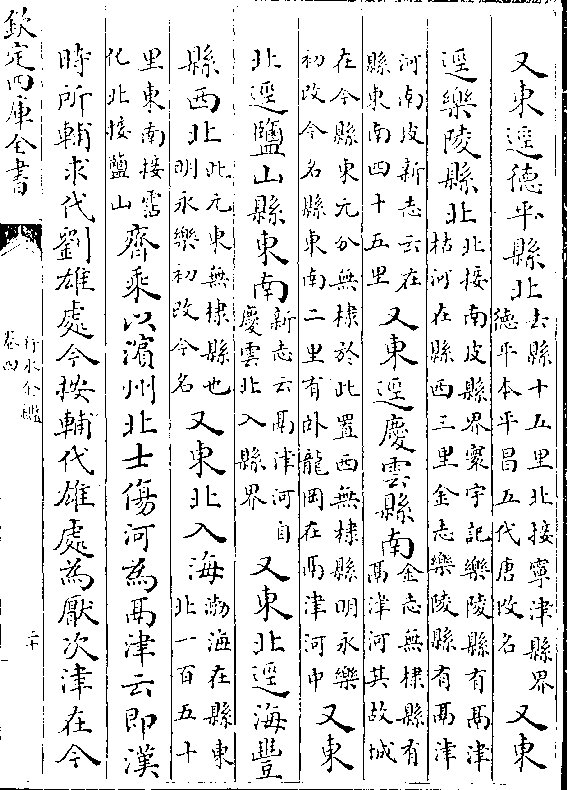 又東逕德平縣北去縣十五里北接寧津縣界德平本平昌五代唐改名又東
逕樂陵縣北北接南皮縣界寰宇記樂陵縣有鬲津枯河在縣西三里金志樂陵縣有鬲津
河南皮新志云在縣東南四十五里又東逕慶雲縣南金志無棣縣有鬲津河其故城
在今縣東元分無棣於此置西無棣縣明永樂初改今名縣東南二里有卧龍岡在鬲津河中又東
北逕鹽山縣東南新志云鬲津河自慶雲北入縣界又東北逕海豐
縣西北此元東無棣縣也明永樂初改今名又東北入海渤海在縣東北一百五十
里東南接霑化北接鹽山齊乘以濱州北士傷河為鬲津云即漢
時所輔求代劉雄處今按輔代雄處為厭次津在今
欽定四庫全書
行水金鑑
卷四
二十